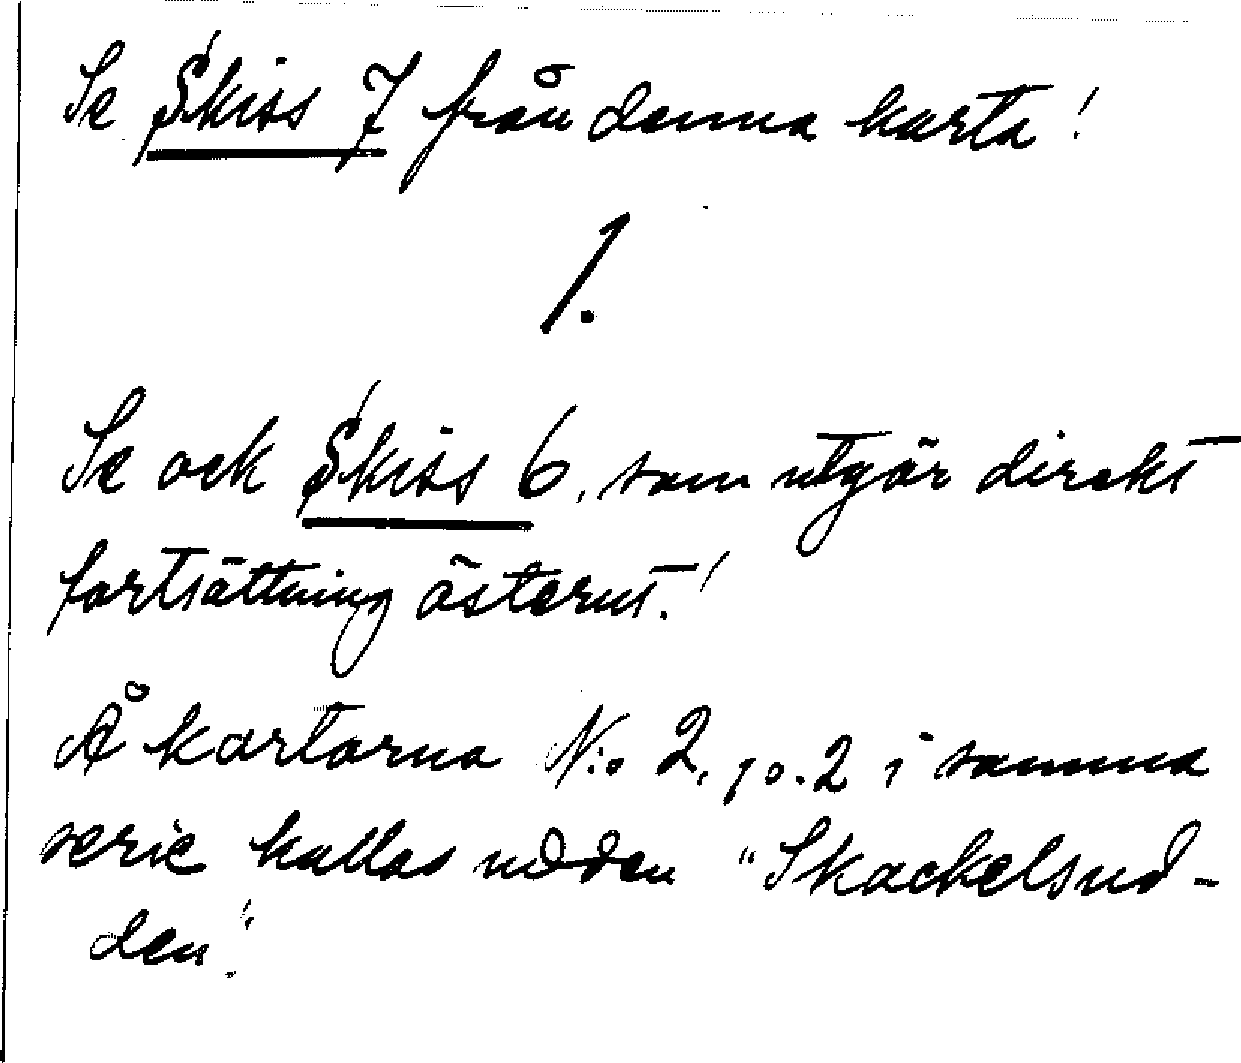 Se Skiss 7 från denna karta!
1.
Se ock Skiss 6, som utgör direkt
fortsättning österut.!
Å kartorna N:o 2, 2 i samma
serie kallas udden "Skackelsud-
den"!